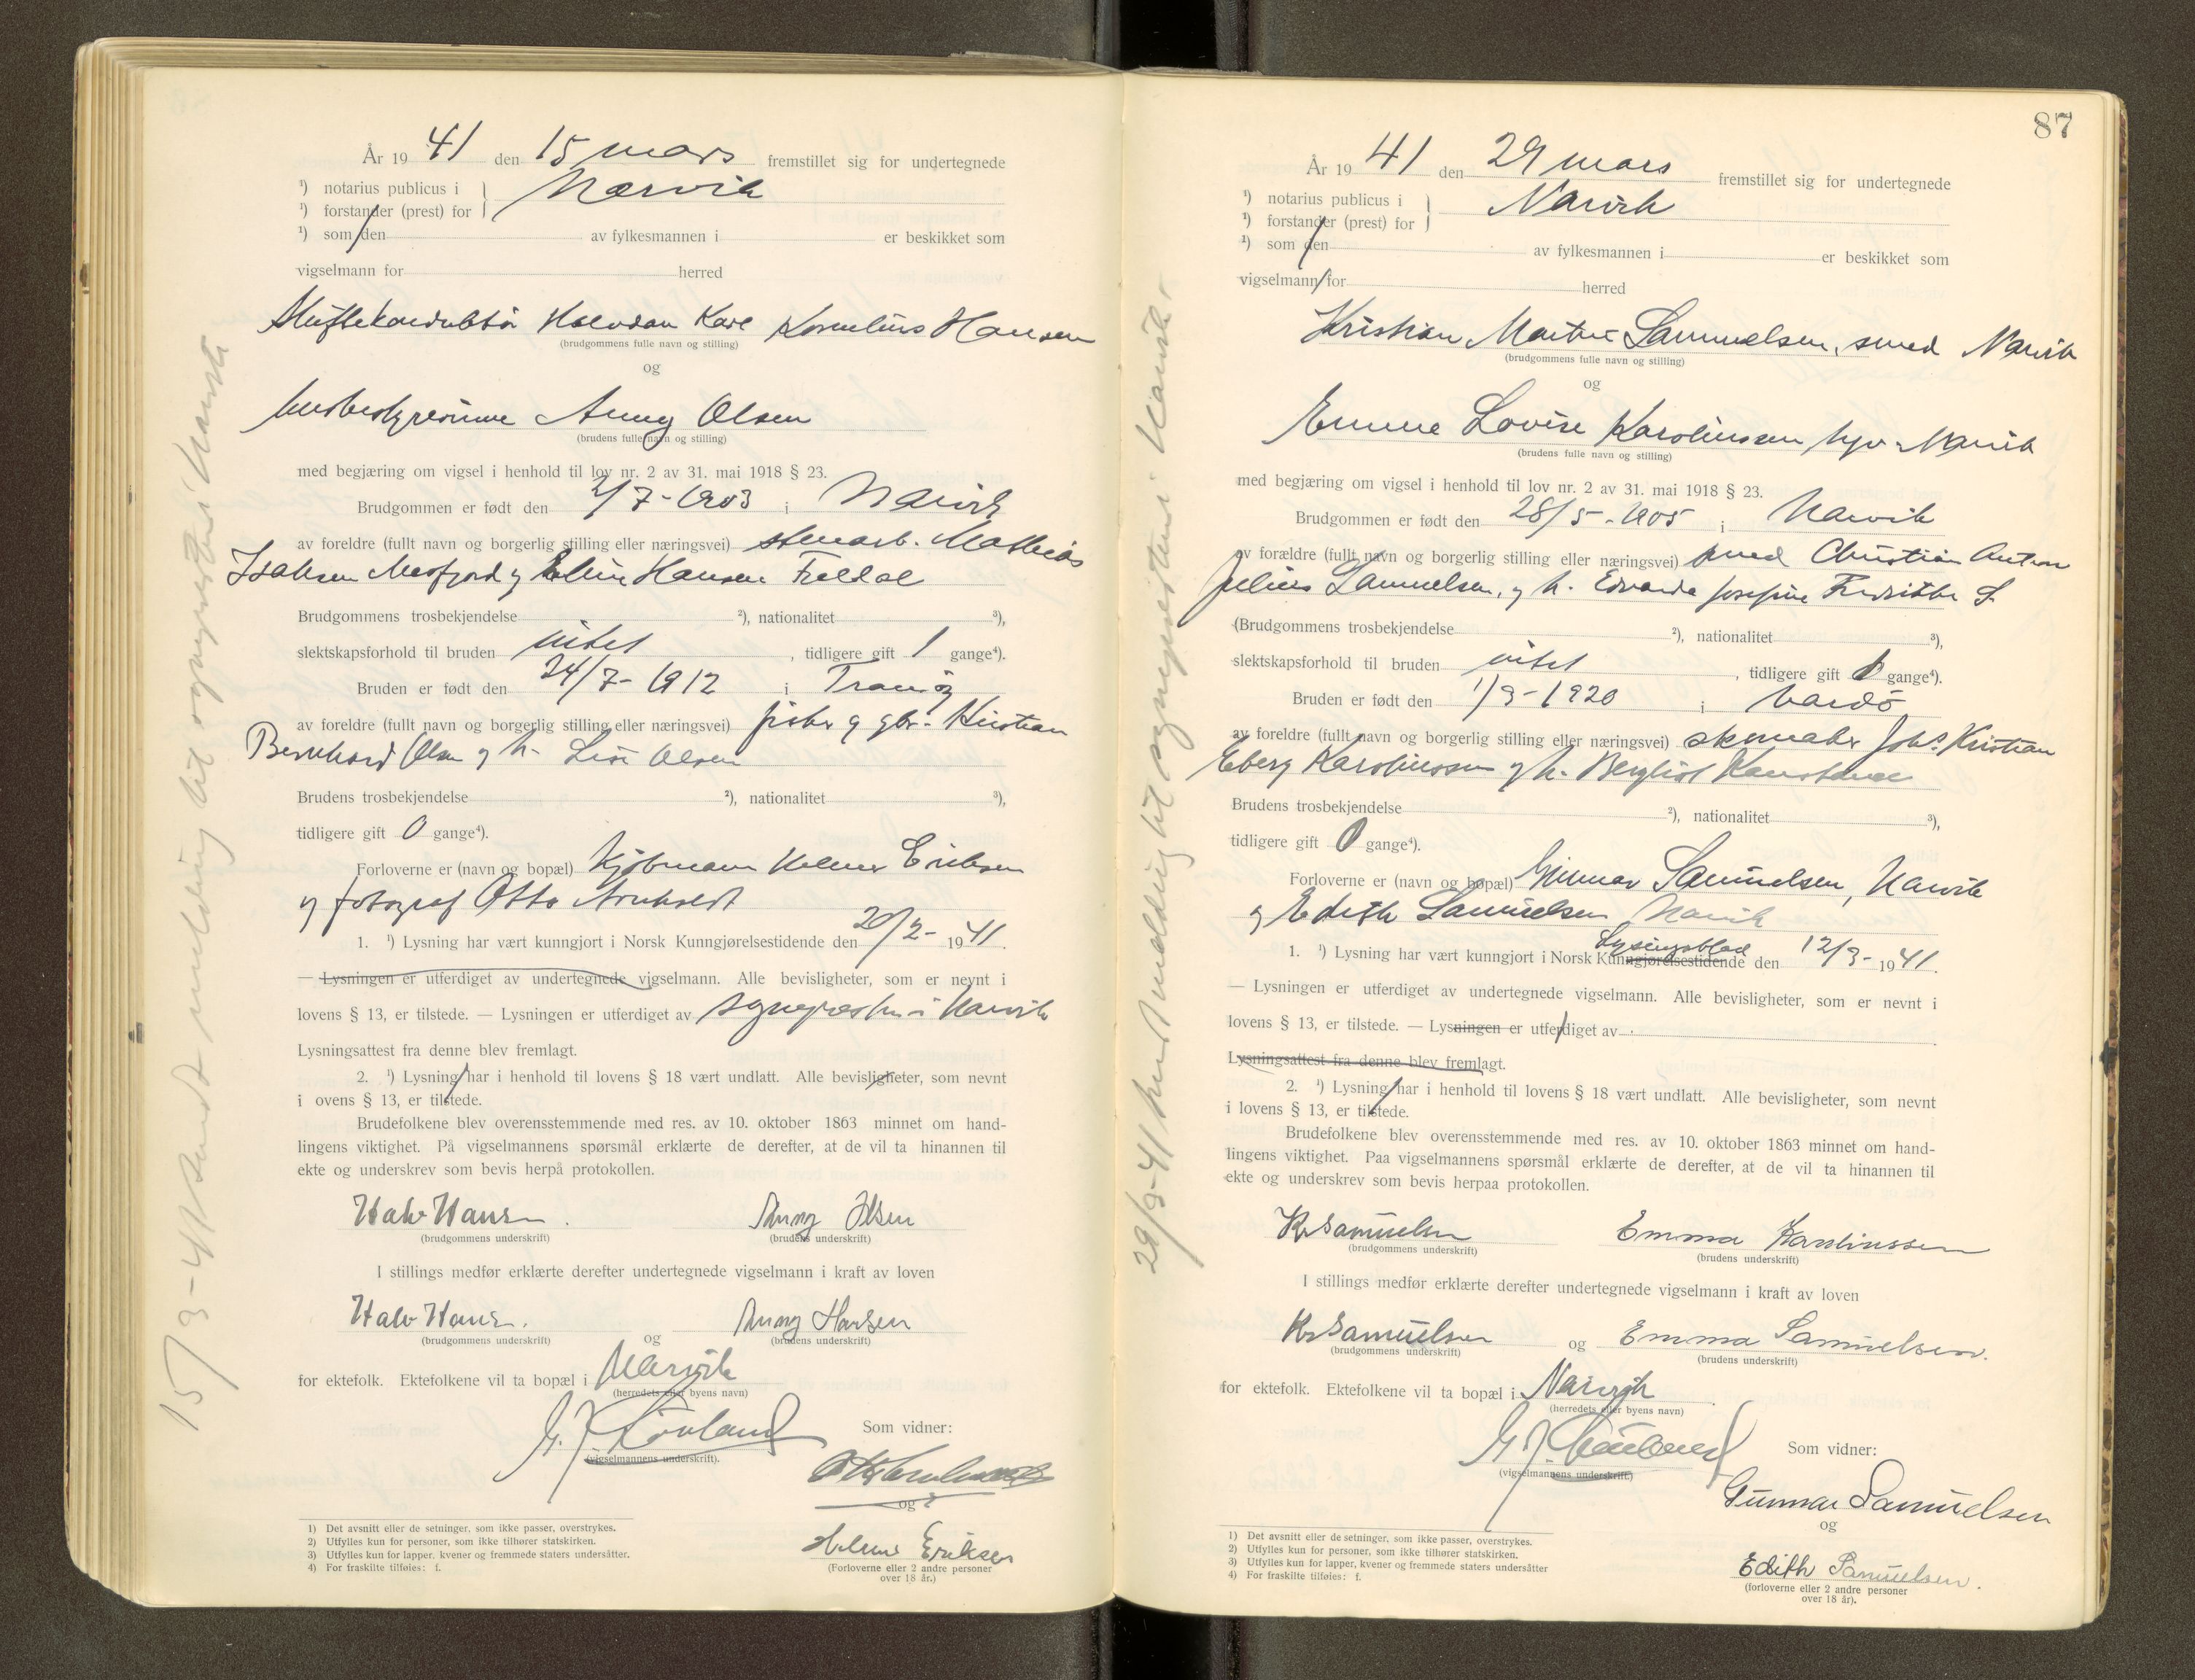 År 19 41 den 15 mars fremstillet sig for undertegnede
¹) notarius publicus i } Narvik
¹) forstander (prest) for
¹) som den av fylkesmannen i er beskikket som
vigselmann for herred
Skiftekonduktør Halvdan Kare Kornelius Hansen
(brudgommens fulle navn og stilling)
og
husbestyrerinne Anny Olsen
(brudens fulle navn og stilling)
med begjæring om vigsel i henhold til lov nr. 2 av 31. mai 1918 § 23.
Brudgommen er født den 2/7-1903 i Narvik
av foreldre (fullt navn og borgerlig stilling eller næringsvei) stenarb. Mathias
Isaksen Mosfjord og Hansen
Brudgommens trosbekjendelse ²), nationalitet ³),
slektskapsforhold til bruden intet, tidligere gift 1 gange⁴).
Bruden er født den 24/7-1912 i Tranöy
av foreldre (fullt navn og borgerlig stilling eller næringsvei) fisker og gbr. Kristian
Bernhard Olsen og h. Olsen
Brudens trosbekjendelse ²), nationalitet ³),
tidligere gift 0 gange⁴).
Forloverne er (navn og bopæl) Kjöbmann Helmer Eriksen
og fotograf Otto
1. ¹) Lysning har vært kunngjort i Norsk Kunngjørelsestidende den 20/2- 1941.
— Lysningen er utferdiget av undertegnede vigselmann. Alle bevisligheter, som er nevnt i
lovens § 13, er tilstede. — Lysningen er utferdiget av sognepresten i Narvik
Lysningsattest fra denne blev fremlagt.
2. ¹) Lysning har i henhold til lovens § 18 vært undlatt. Alle bevisligheter, som nevnt
i ovens § 13, er tilstede.
Brudefolkene blev overensstemmende med res. av 10. oktober 1863 minnet om hand-
lingens viktighet. På vigselmannens spørsmål erklærte de derefter, at de vil ta hinannen til
ekte og underskrev som bevis herpå protokollen.
Halv Hansen. Anny Olsen
(brudgommens underskrift) (brudens underskrift)
I stillings medfør erklærte derefter undertegnede vigselmann i kraft av loven
Halv Hansen. Anny Hansen
(brudgommens underskrift) og (brudens underskrift)
for ektefolk. Ektefolkene vil ta bopæl i Narvik
(herredets eller byens navn)
G. J. Løvland Som vidner:
(vigselmannens underskrift).
og
Helmer Eriksen
(Forloverne eller 2 andre personer
over 18 år.)
1) Det avsnitt eller de setninger, som ikke passer, overstrykes.
2) Utfylles kun for personer, som ikke tilhører statskirken.
3) Utfylles kun for lapper, kvener og fremmede staters undersåtter.
4) For fraskilte tilføies: f.
15/3-41 sendt melding til sognepresten i Narvik
87
År 19 41 den 29 mars fremstillet sig for undertegnede
¹) notarius publicus i } Narvik
¹) forstander (prest) for
¹) som den av fylkesmannen i er beskikket som
vigselmann for herred
Kristian Martin Samuelsen, smed Narvik
(brudgommens fulle navn og stilling)
og
Emma Lovise Karolinssen hjv. Narvik
(brudens fulle navn og stilling)
med begjæring om vigsel i henhold til lov nr. 2 av 31. mai 1918 § 23.
Brudgommen er født den 28/5-1905 i Narvik
av forældre (fullt navn og borgerlig stilling eller næringsvei) smed Christian Anton
Julius Samuelsen, og h. Edvarda Josefine Fredrikke S.
(Brudgommens trosbekjendelse ²), nationalitet ³),
slektskapsforhold til bruden intet, tidligere gift 0 gange⁴).
Bruden er født den 1/3-1920 i Vardö
av foreldre (fullt navn og borgerlig stilling eller næringsvei) skomaker Johs. Kristian
Eberg Karolinssen og h. Bergliot Konstanse
Brudens trosbekjendelse ²), nationalitet ³),
tidligere gift 0 gange⁴).
Forloverne er (navn og bopæl) Gunnar Samuelsen, Narvik
og Edith Samuelsen Narvik
Lysingsblad
1. ¹) Lysning har vært kunngjort i Norsk Kunngjørelsestidende den 12/3- 1941.
— Lysningen er utferdiget av undertegnede vigselmann. Alle bevisligheter, som er nevnt i
lovens § 13, er tilstede. — Lysningen er utferdiget av
Lysningsattest fra denne blev fremlagt.
2. ¹) Lysning har i henhold til lovens § 18 vært undlatt. Alle bevisligheter, som nevnt
i lovens § 13, er tilstede.
Brudefolkene blev overensstemmende med res. av 10. oktober 1863 minnet om hand-
lingens viktighet. Paa vigselmannens spørsmål erklærte de derefter, at de vil ta hinannen til
ekte og underskrev som bevis herpaa protokollen.
Kr Samuelsen Emma Karolinssen
(brudgommens underskrift) (brudens underskrift)
I stillings medfør erklærte derefter undertegnede vigselmann i kraft av loven
Kr Samuelsen og Emma Samuelsen.
(brudgommens underskrift) (brudens underskrift)
for ektefolk. Ektefolkene vil ta bopæl i Narvik
(herredets eller byens navn)
G J. Løvland Som vidner:
(vigselmannens underskrift.)
Gunnar Samuelsen
og
Edith Samuelsen.
(forloverne eller 2 andre personer
over 18 år).
1) Det avsnitt eller de setninger, som ikke passer, overstrykes.
2) Utfylles kun for personer, som ikke tilhører statskirken.
3) Utfylles kun for lapper, kvener og fremmede staters undersåtter
4) For fraskilte tilføies: f.
29/3-41 sendt melding til sognepresten i Narvik